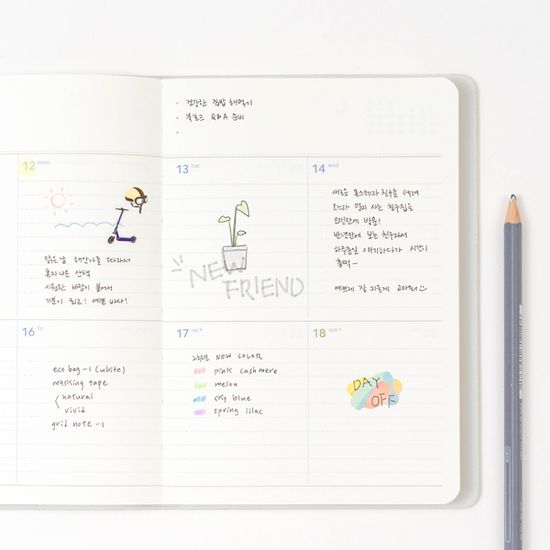 · 건강한 집밥 해먹기
· 블로그 Q&A 준비
·
12 mon
맑은 날 해안가를 따라서
혼자 나온 산책
시원한 바람이 불어서
기분이 최고! 예쁜 바다!
13 tue
NEW
FRIEND
14 wed
새로운 몬스테라 친구를 데려
오느라 멀리 사는 친구집을
오랜만에 방문!
반년만에 보는 친구라서
하루종일 이야기하다가 시간이
훌쩍~
예쁘게 잘 키울게 고마워
16 fri
eco bag -1 (white)
masking tape
natural
vivid
grid note -1
17 sat
NEW COLOR
pink cashmere
melon
sky blue
spring lilac
18 sun
DAY
OFF